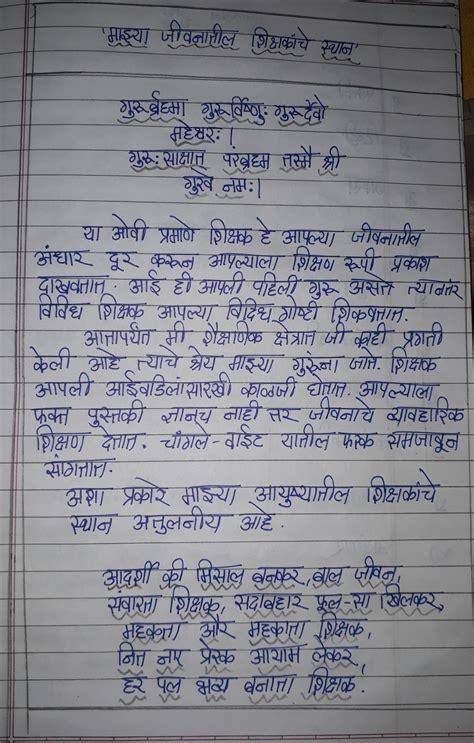 'माझ्या जीवनातील शिक्षकांचे स्थान'
गुरुर्ब्रहमा गुरुर्विष्णुः गुरुर्देवो
महेश्वरः।
गुरुः साक्षात परब्रहम तस्मै श्री
गुरवे नमः।
या ओवी प्रमाणे शिक्षक हे आपल्या जीवनातील
अंधार दूर करून आपल्याला शिक्षण रूपी प्रकाश
दाखवतात. आई ही आपली पहिली गुरु असते त्यानंतर
विविध शिक्षक आपल्या विविध गोष्टी शिकवतात.
आत्तापर्यंत मी शैक्षणिक क्षेत्रात जी काही प्रगती
केली आहे त्याचे श्रेय माझ्या गुरूंना जाते. शिक्षक
आपली आईवडिलांसारखी काळजी घेतात. आपल्याला
फक्त पुस्तकी ज्ञानच नाही तर जीवनाचे व्यावहारिक
शिक्षण देतात. चांगले-वाईट यातील फरक समजावून
सांगतात.
अशा प्रकारे माझ्या आयुष्यातील शिक्षकांचे
स्थान अतुलनीय आहे.
आदर्शो की मिसाल बनकर, बाल जीवन
संवारता शिक्षक, सदाबहार फूल-सा खिलकर,
महकता और महकाता शिक्षक,
नित नए प्रेरक आयाम लेकर,
हर पल भव्य बनाता शिक्षक.